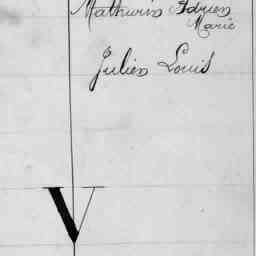 Mathurin Adrien
Marie
Julien Louis
V